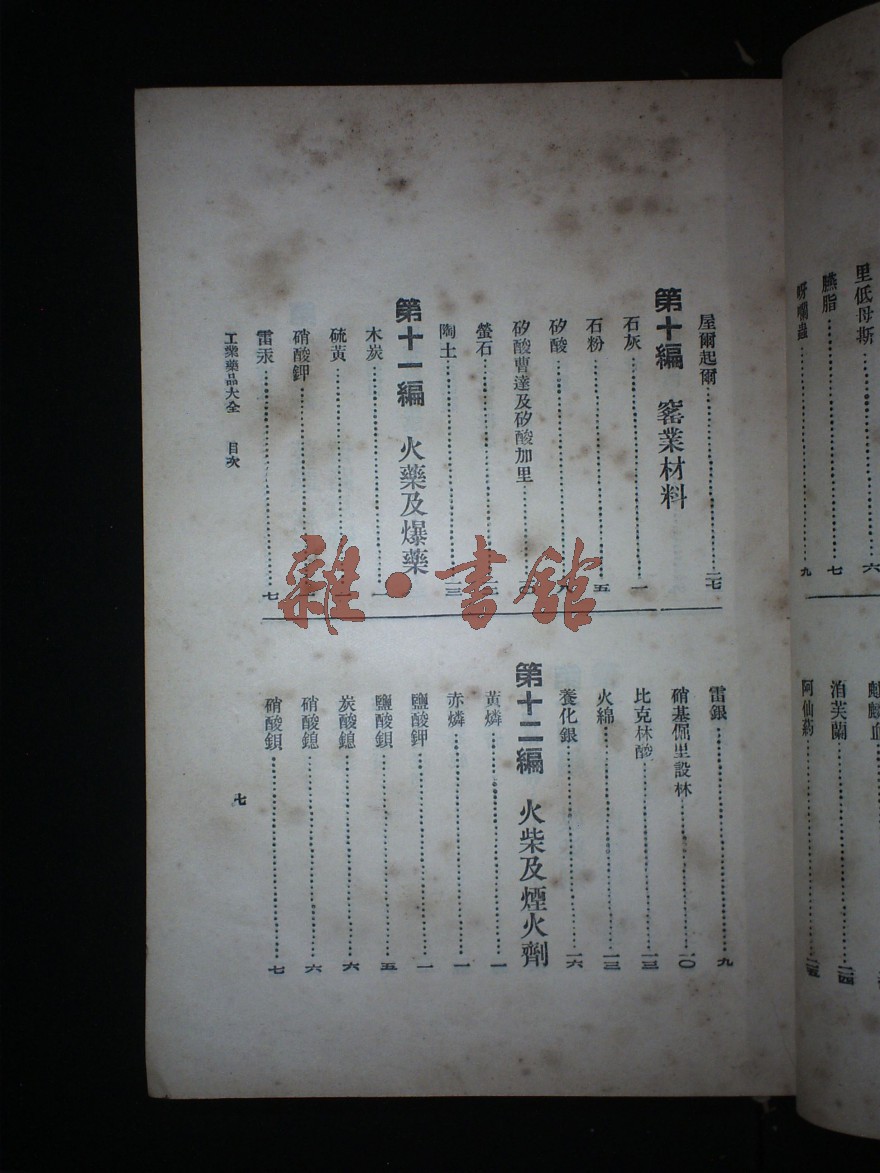 里低母斯 六
臙脂 七
呀囒蟲 九
麒麟血
泊芙蘭 二四
阿仙藥 二五
屋爾起爾 二七
第十編 窰業材料
石灰 一
石粉 五
矽酸 八
矽酸曹達及矽酸加里 一〇
螢石 一二
陶土 一三
第十一編 火藥及爆藥
木炭 一
硫黃
硝酸鉀
雷汞 七
雷銀 九
硝基倔里設林 一〇
比克林酸 一三
火綿 一三
養化銀 一六
第十二編 火柴及煙火劑
黃燐 一
赤燐 一
鹽酸鉀 一
鹽酸鋇 五
炭酸鎴 六
硝酸鎴 六
硝酸鋇 七
工業藥品大全 目次
七
雜·書館